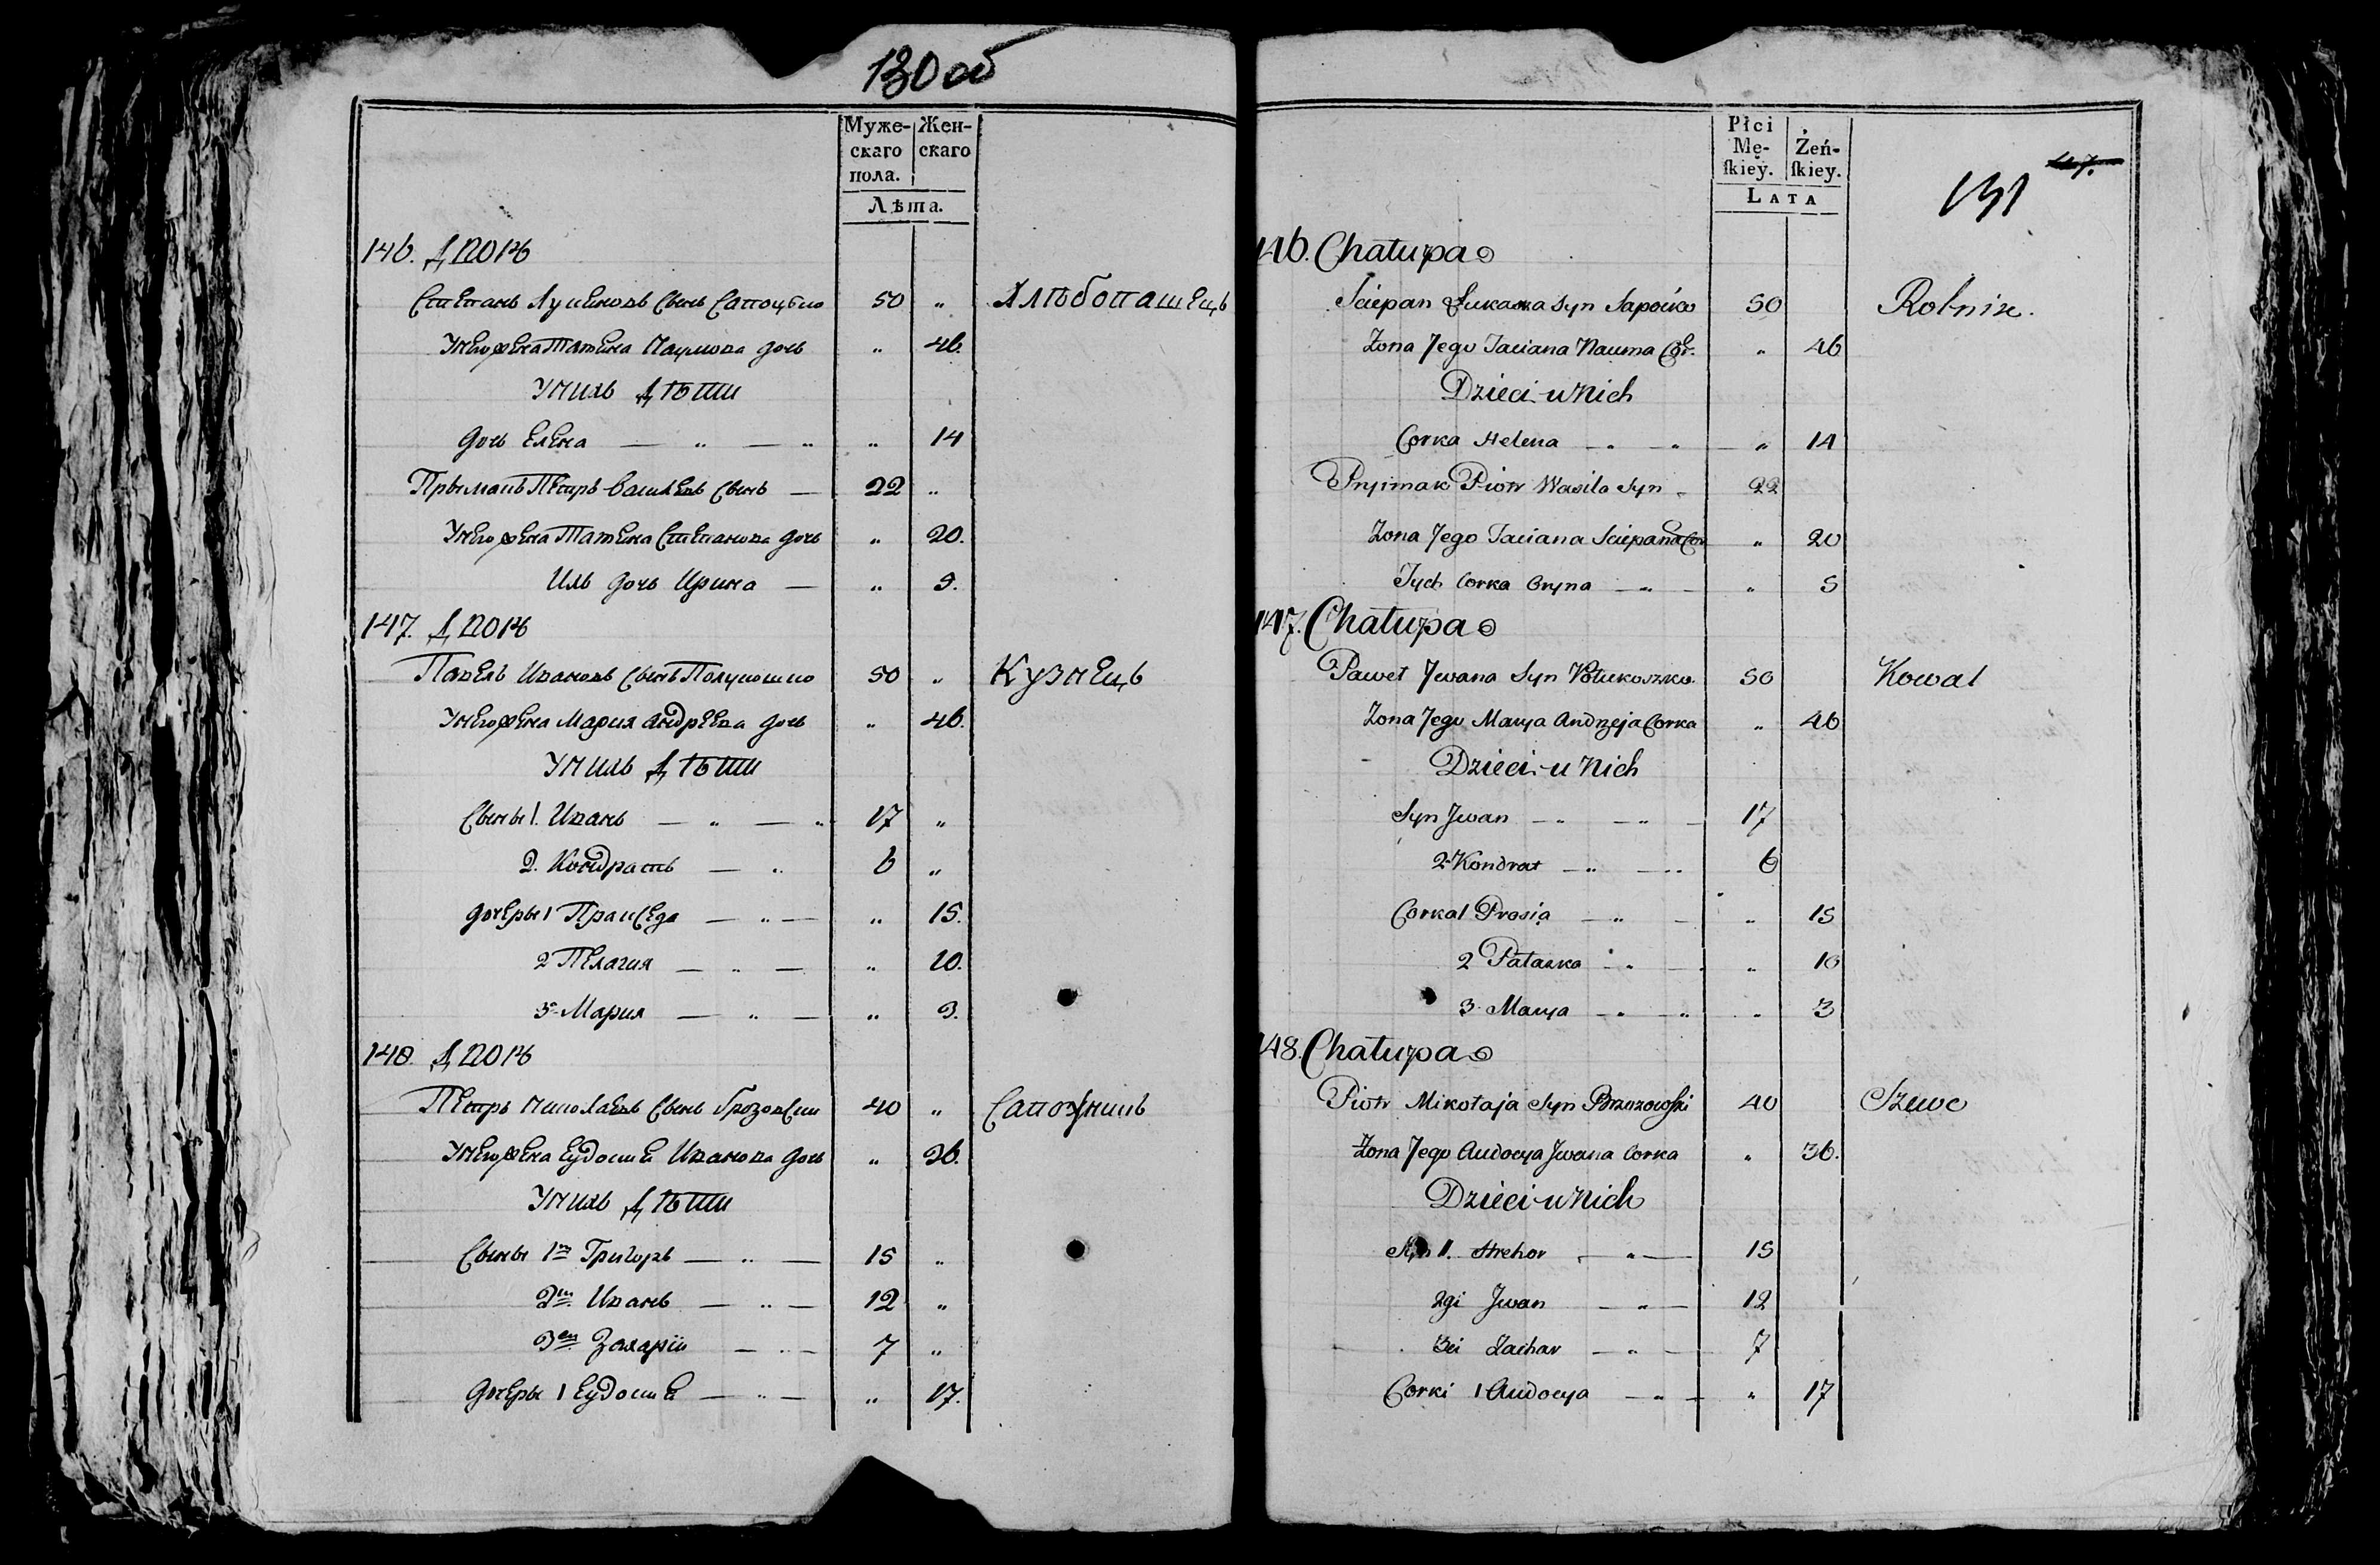 130 об
Муже-скаго пола. Жен-скаго
Лѣта.
146. Дворъ
Степанъ Лукяновъ сынъ Сапоцько 50 " Хлѣбопашецъ
У него жена Татьяна Наумова дочь " 46.
У нихъ дѣти
дочь Елена — " — " " 14
Прымакъ Петръ Васильевъ сынъ — 22 "
У него жена Татьяна Степанова дочь " 20.
Ихъ дочь Ирина — "
147. Дворъ
Павелъ Ивановъ сынъ 50 " Кузнецъ
У него жена Мария Андреева дочь " 46.
У нихъ дѣти
Сыны 1. Иванъ — " — " 17 "
2. Кондратъ — " 6 "
дочеры 1 Пракседа — " — " 15.
2 Пелагия — " — " 10.
3 Мария — " — " 3.
148. Дворъ
Петръ Николаевъ сынъ Брозовски 40 " Сапожникъ
У него жена Еудокия Иванова дочь " 36.
У нихъ дѣти
Сыны 1й Григоръ — " — 15 "
2й Иванъ — " — 12 "
3ей Захарій — " — 7 "
дочеры 1 Еудокия — " — " 17.
Płci Mę-ſkiey. Żeń-ſkiey.
LATA
131
146. Chałupa
Sciepan syn Sapoćko 50 Rolnik.
Żona Jego Taciana Nauma Cor. " 46
Dzieci u Nich
Corka Helena — " — " — " 14
Pryimak Piotr Wasila Syn 22
Żona Jego Taciana Sciepana Cor " 20
Tych Corka Oryna — " — " 5
147. Chałupa
Paweł Jwana Syn 50 Kowal
Żona Jego Marya Andrzeja Corka " 46
Dzieci u Nich
Syn Jwan — " — " — 17
2 Kondrat — " — " 6
Corka 1 Prosia — " — " 15
2 Pałaszka " — " 10
3 Marya — " — " " 3
148. Chałupa
Piotr Mikołaja Syn Brzozowſki 40 Szewc
Żona Jego Audocya Jwana Corka " 36.
Dzieci u Nich
Syn 1. Hrehor — " — 15
2gi Jwan — " — 12
3ci Zachar — " — 7
Corki 1 Audocya — " — " 17